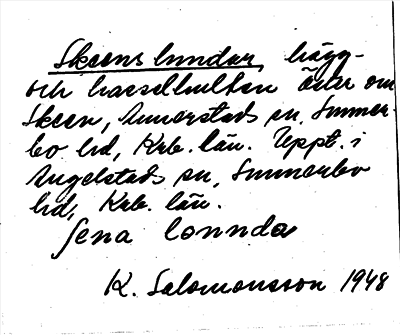 Skeens lundar, hägg-
och hasselhulten öster om
Skeen, Annerstads sn, Sunner-
bo hd, Krb. län. Uppt. i
Angelstads sn, Sunnerbo
hd, Krb. län.
ſena lonnda
K. Salomonsson 1948